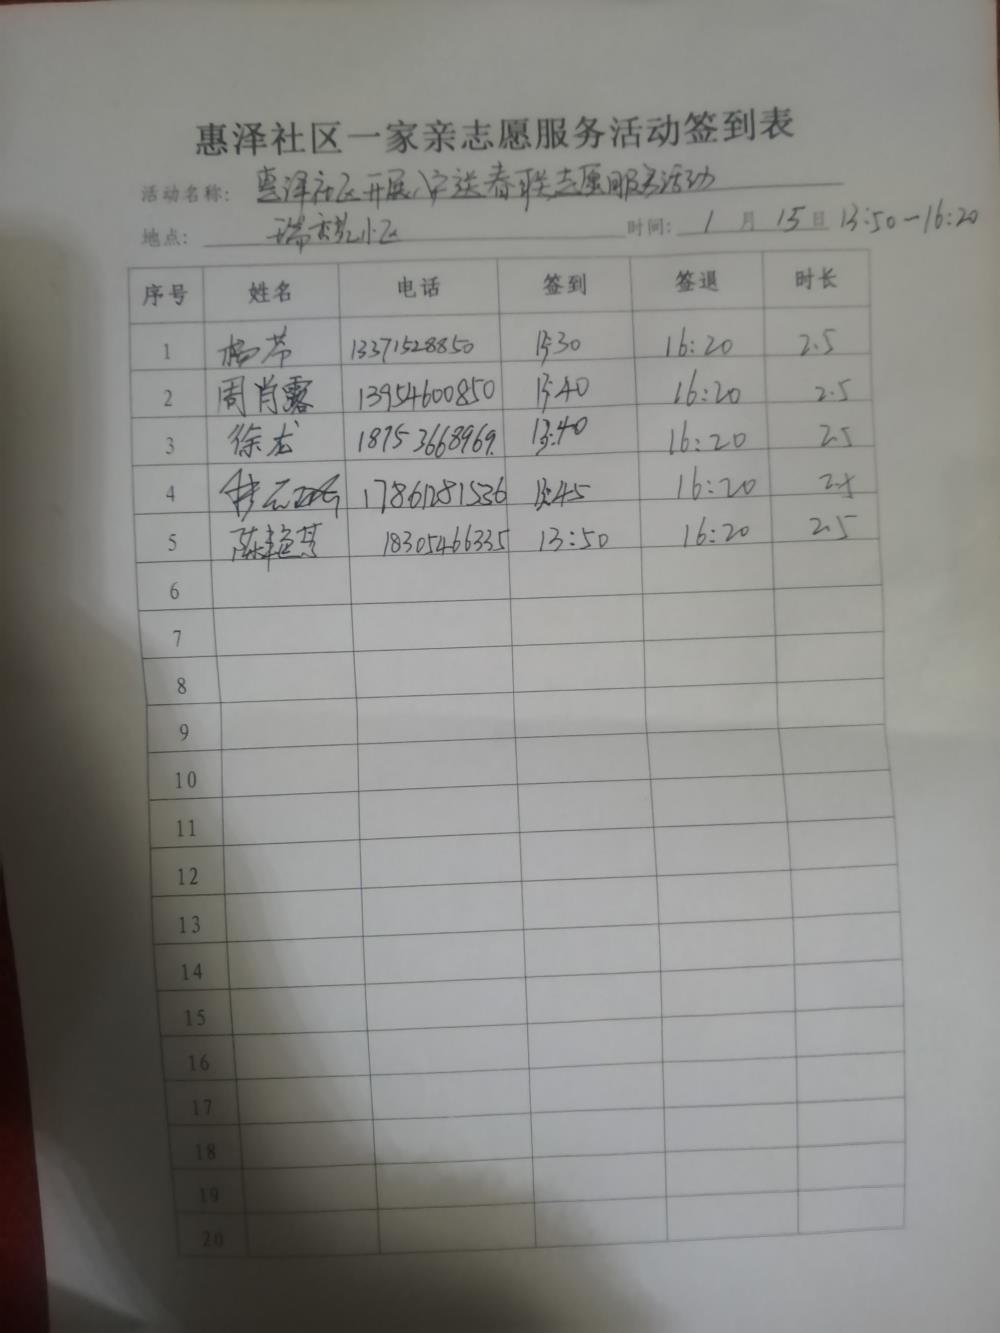 惠泽社区一家亲志愿服务活动签到表
活动名称: 惠泽社区开展入户送春联志愿服务活动
地点: 瑞 小区 时间: 1 月 15 日 13:50-16:20
序号 姓名 电话 签到 签退 时长
1 杨芹 13371528850 13:30 16:20 2.5
2 周肖露 13954600850 13:40 16:20 2.5
3 徐龙 18753668969 13:40 16:20 2.5
4 17861281536 13:45 16:20 2.5
5 陈艳梦 18305466335 13:50 16:20 2.5
6
7
8
9
10
11
12
13
14
15
16
17
18
19
20